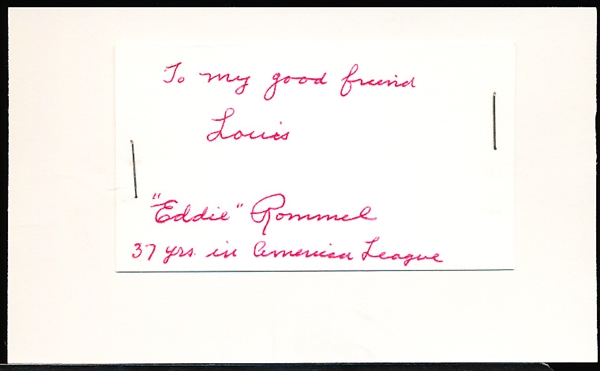 To my good friend
Louis
"Eddie" Rommel
37 yrs. in America League